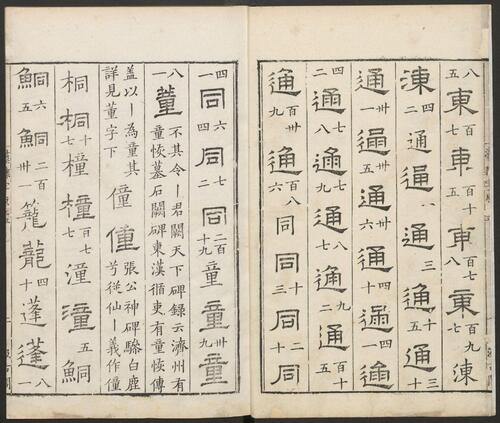 八五東百七東百十五東百七八東百九七涷
涷四通通八通三通十五通十三
通卅一通卅五通卅六通十四通四一通
四二通七八通七九通八七通九二通百十五
通百卅九通百八六同同十三同二十同
四一同六四同七二同二百十九童童卅九童
八一董不其令丨君闕天下碑錄云濟州有
童恢墓石闕碑東漢循吏有童恢傳
蓋以丨為童其
詳見董字下僮僮張公神碑驂白鹿
兮從仙丨義作僮
桐桐十七橦橦百七七潼潼五鮦
鮦六五鮦二百卅一籠籠四十蓬蓬八一